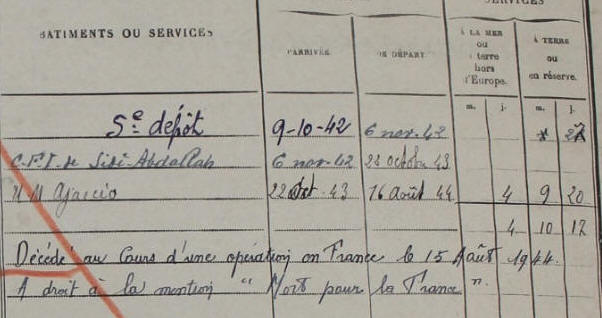 SERVICES
BATIMENTS OU SERVICES D'ARRIVÉE. DE DÉPART. À LA MER ou à terre hors d'Europe. À TERRE ou en réserve.
m. j. m. j.
5e dépôt 9-10-42 6 nov. 42
C.F.I. de Sidi-Abdallah 6 nov. 42 22 octobre 43
U M Ajaccio 22 Oct. 43 16 Août 44 4 9 20
4 10 17
Décédé au Cours d'une opération en France le 15 Août 1944.
A droit à la mention " Mort pour la France ".